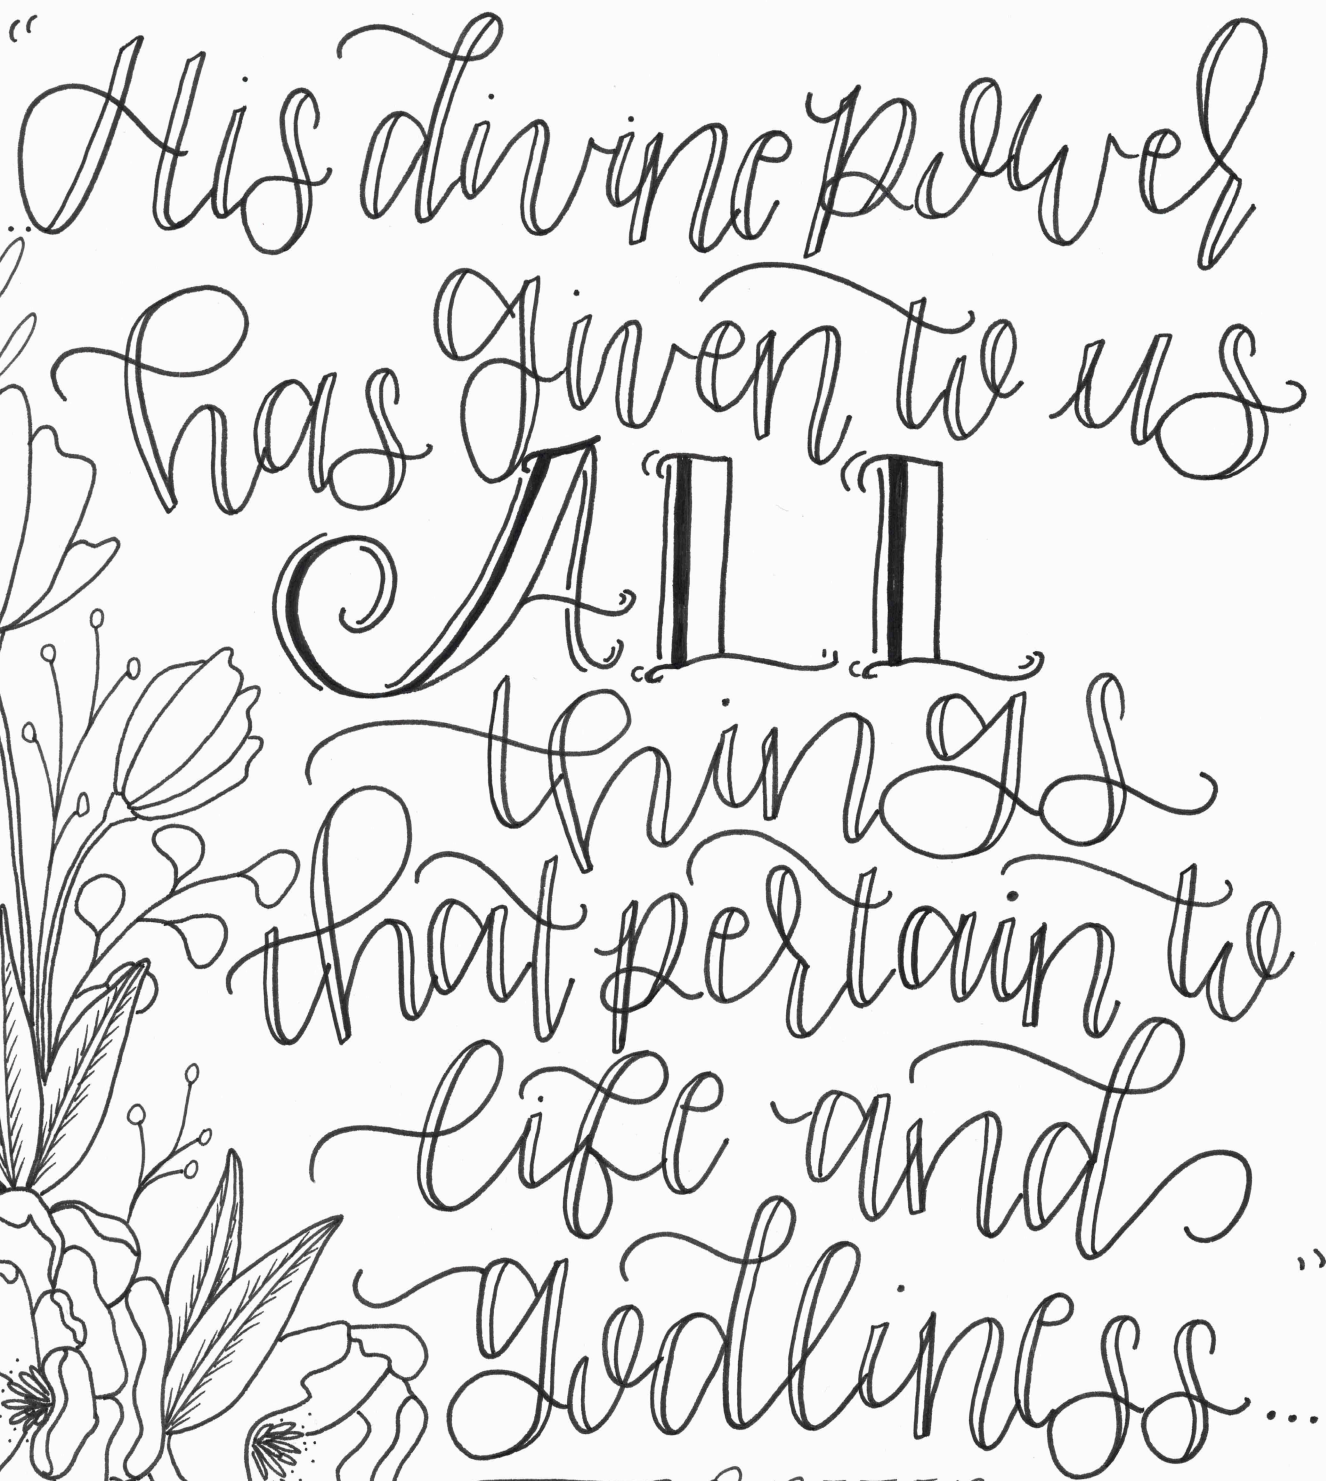 "His divine power
has given to us
ALL
things
that pertain to
life and
godliness..."